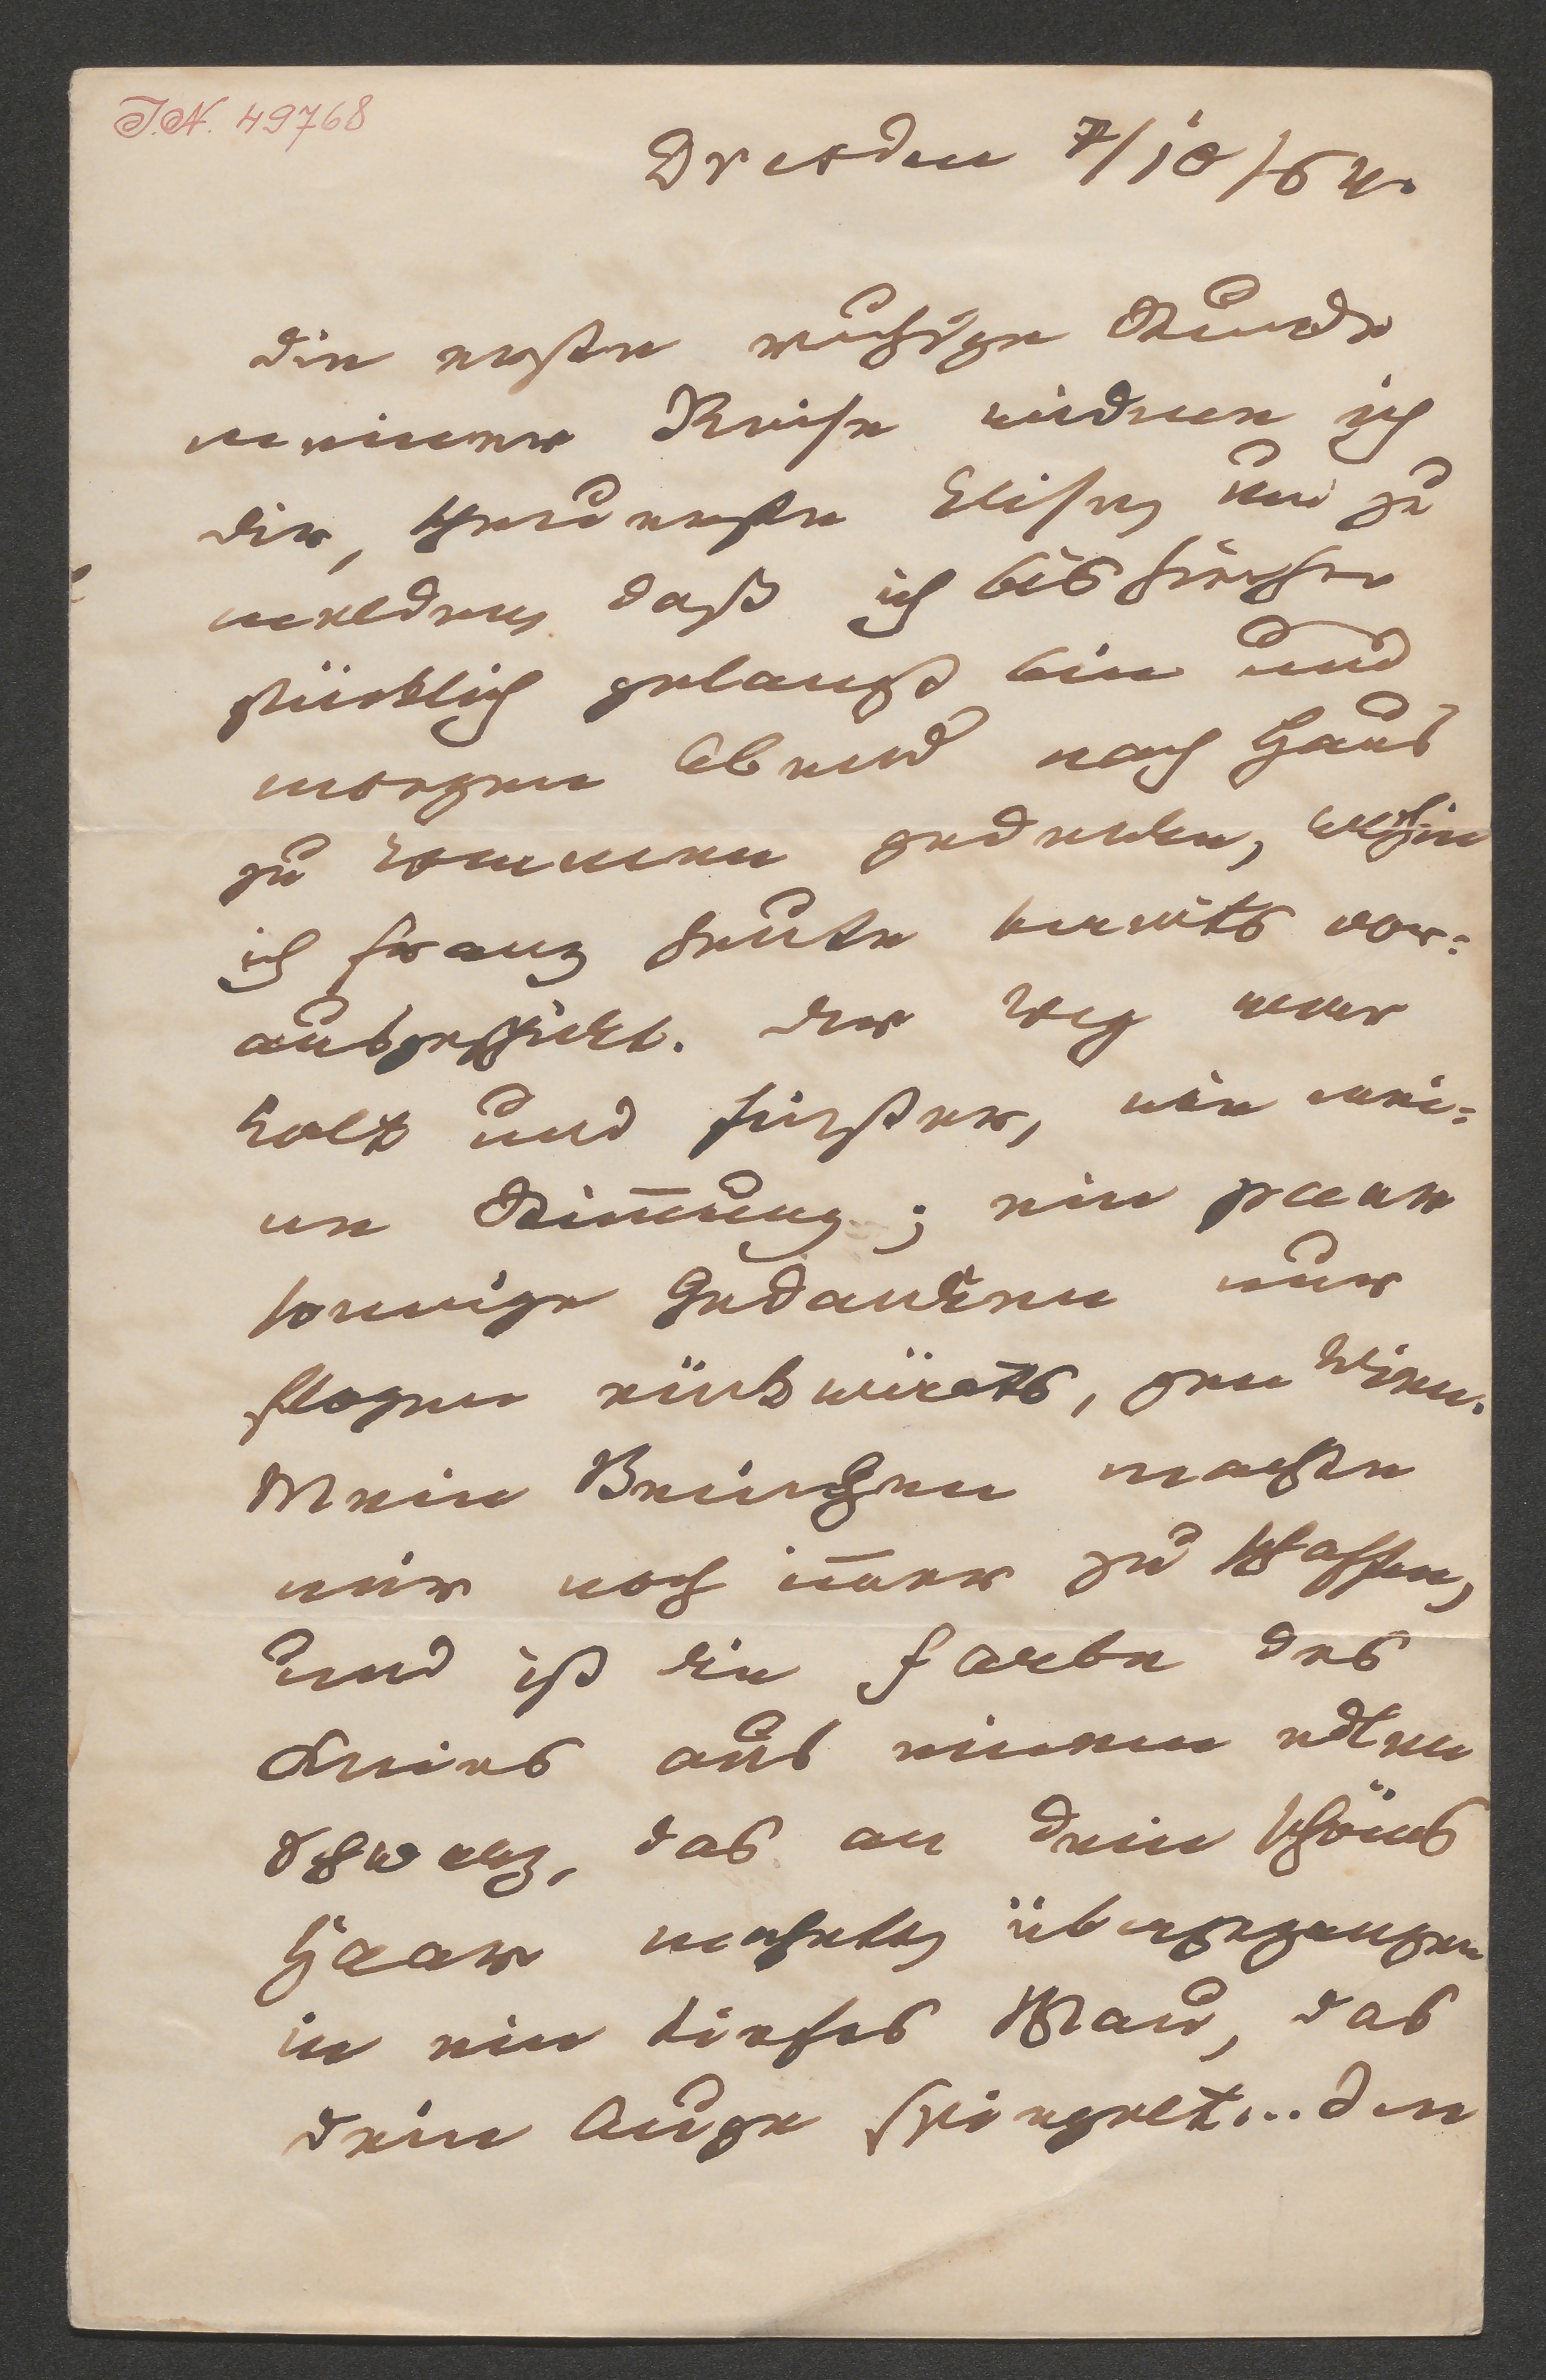 I.N. 49768
Dresden 7/10/64.
Die erste ruhige Stunde
meiner Reise widme ich
dir, theuerste Elise, um zu
melden, daß ich bis hierher
glücklich gelangt bin und
morgen Abend nach Haus
zu kommen gedenke, wohin
ich Franz heute bereits vor=
ausgeschickt. Der Weg war
kalt und finster, wie mei=
ne Stimmung; ein paar
sonnige Gedanken nur
flogen rückwärts, gen Wien.
Mein Beinchen machte
mir noch immer zu schaffen,
und ist die Farbe des
Knies aus einem edlen
Schwarz, das an dein schönes
Haar mahnte, übergegangen
in ein tiefes Blau, das
dein Auge spiegelt... Den